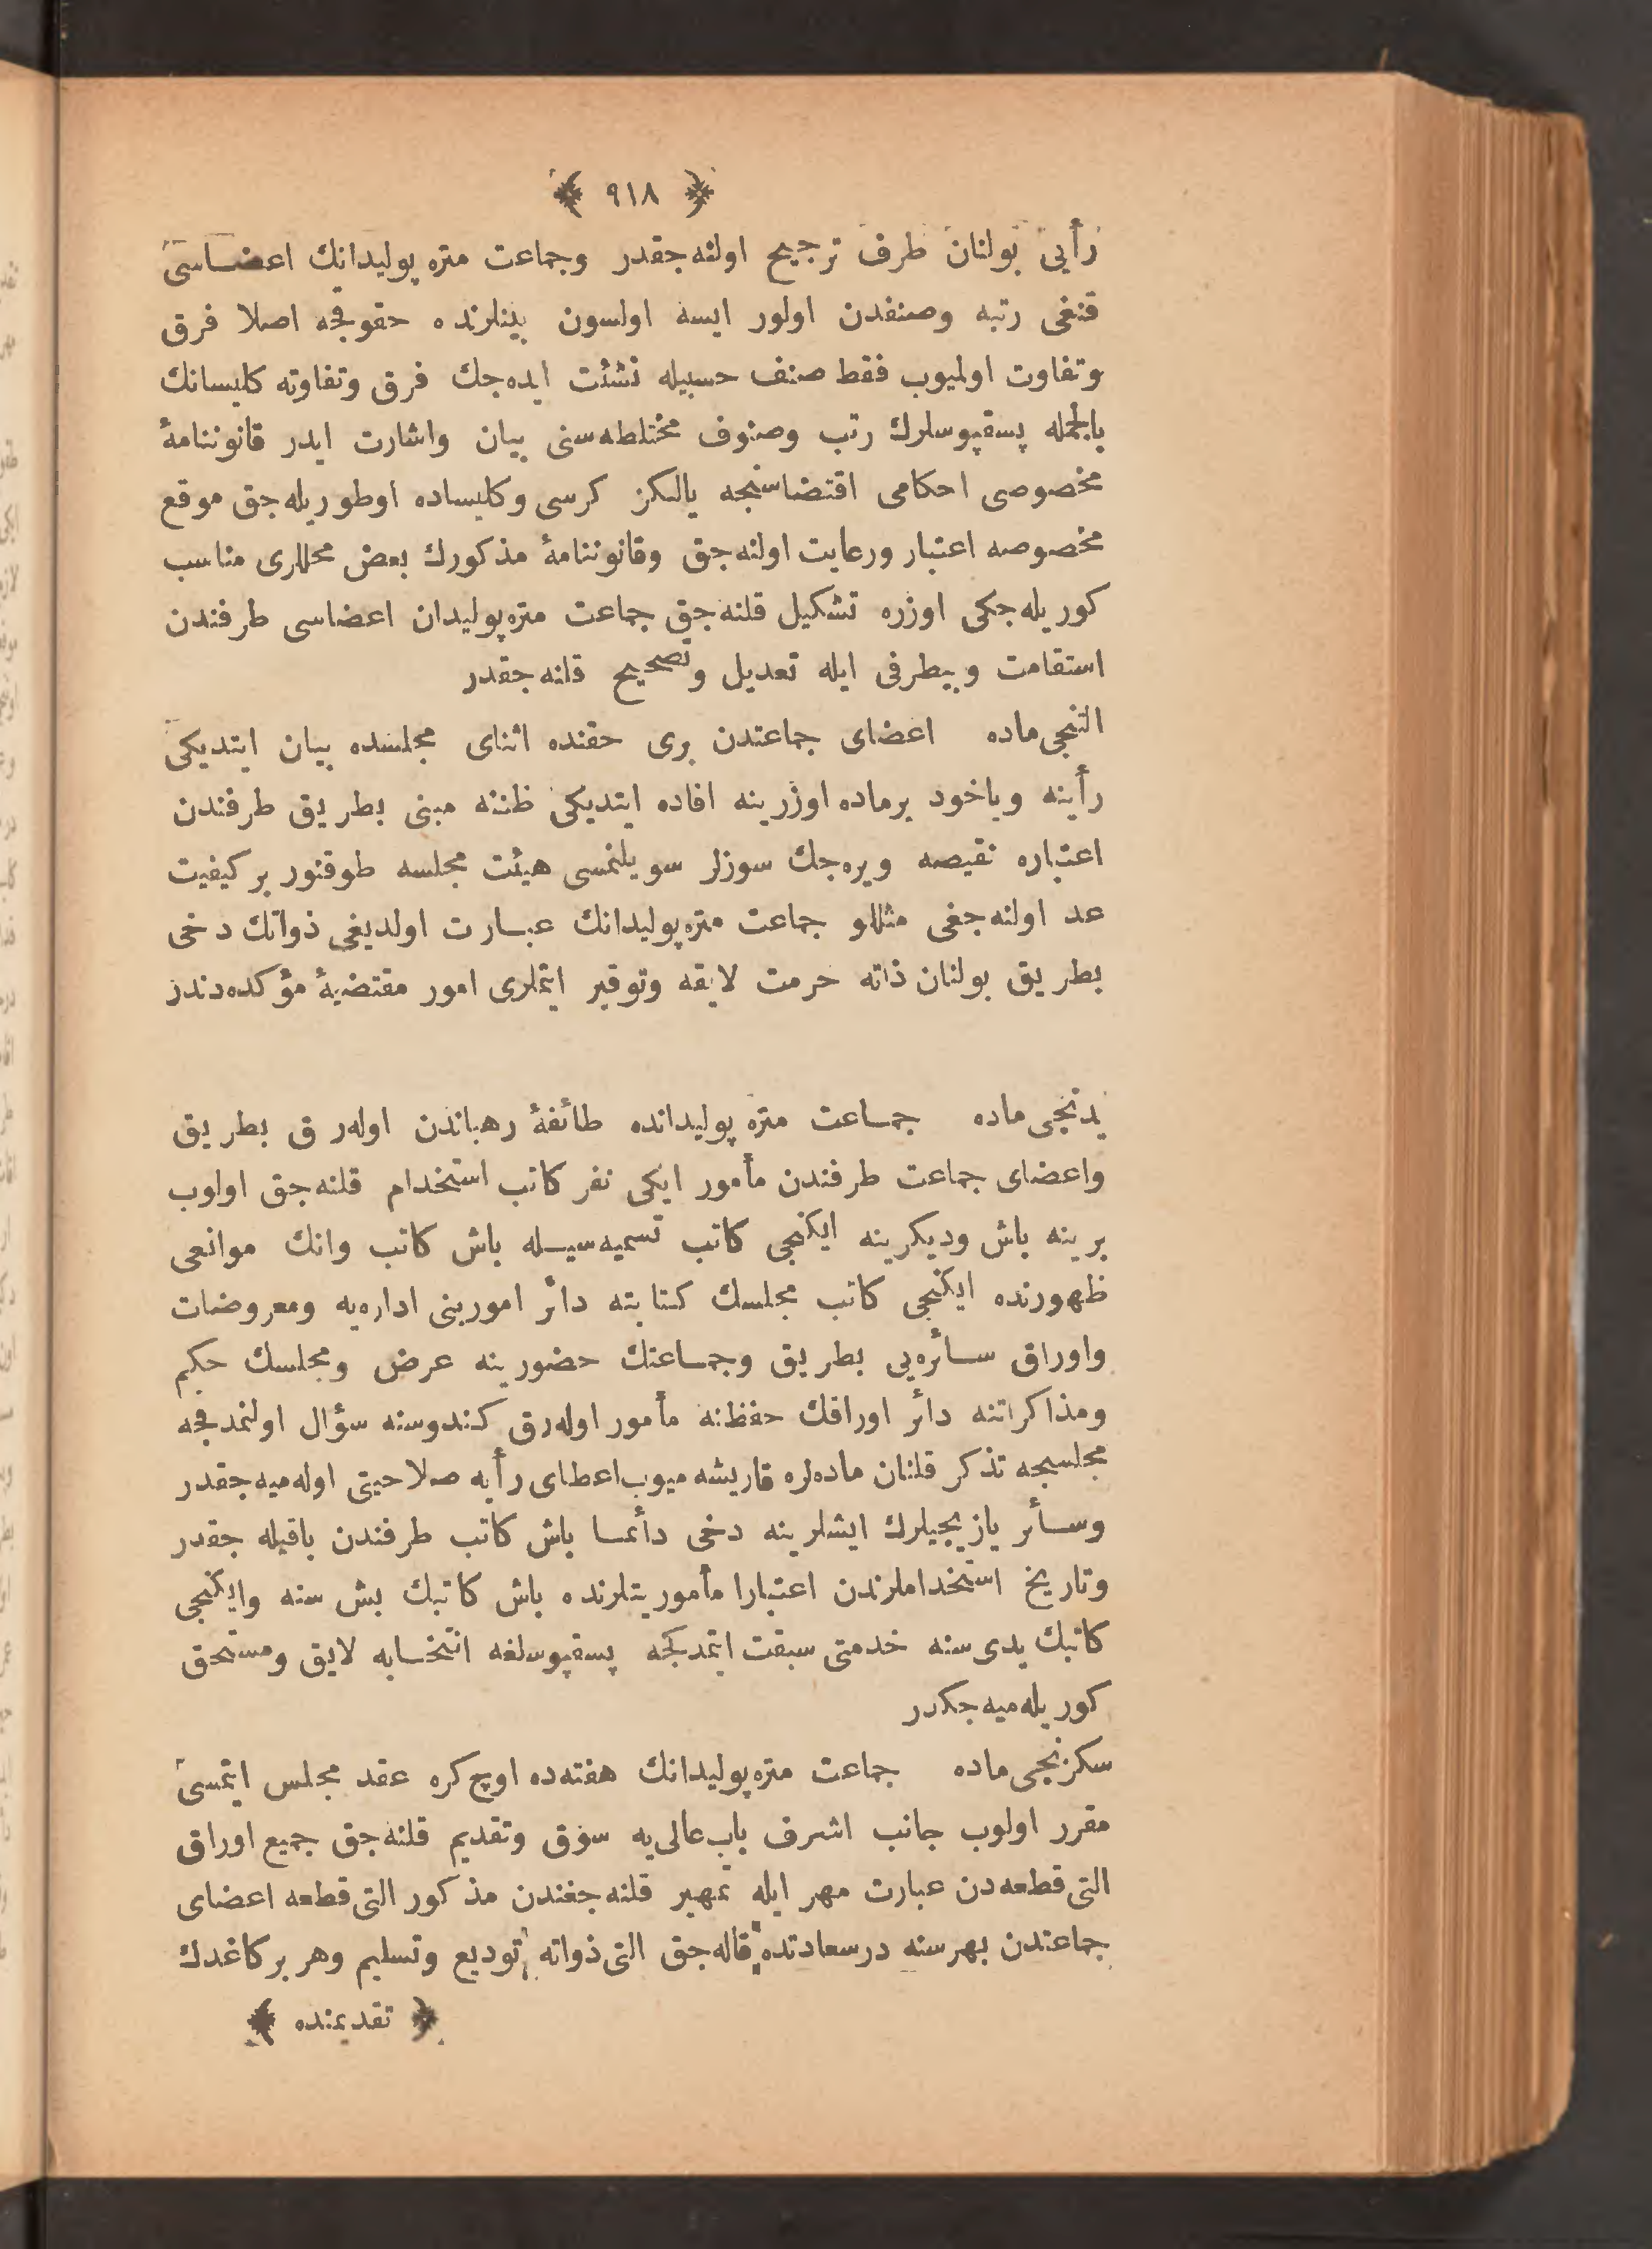 ﴿ ٩١٨ ﴾
رأيى بولنان طرف ترجيح اولنه‌جقدر وجماعت متره‌پوليدانك اعضاسى
قنغى رتبه وصنفدن اولور ايسه اولسون بينلرنده حقوقجه اصلا فرق
وتفاوت اولميوب فقط صنف حسبيله نشئت ايده‌جك فرق وتفاوته كليسانك
بالجمله پسقپوسلرك رتب وصنوف مختلطه‌سنى بيان واشارت ايدر قانوننامهٔ
مخصوصى احكامى اقتضاسنجه يالكز كرسى وكليساده اوطوريله‌جق موقع
مخصوصه اعتبار ورعايت اولنه‌جق وقانوننامهٔ مذكورك بعض محللرى مناسب
كوريله‌جكى اوزره تشكيل قلنه‌جق جماعت متره‌پوليدان اعضاسى طرفندن
استقامت وبيطرفى ايله تعديل وتصحيح قلنه‌جقدر
التنجى ماده اعضاى جماعتدن برى حقنده اثناى مجلسده بيان ايتديكى
رأينه وياخود برماده اوزرينه افاده ايتديكى ظننه مبنى بطريق طرفندن
اعتباره نقيصه ويره‌جك سوزلر سويلنمسى هيئت مجلسه طوقنور بر كيفيت
عد اولنه‌جغى مثللو جماعت متره‌پوليدانك عبارت اولديغى ذواتك دخى
بطريق بولنان ذاته حرمت لايقه وتوقير ايتملرى امور مقتضيهٔ مؤكده‌دندر
يدنجى ماده جماعت متره‌پوليدانده طائفهٔ رهباندن اوله‌رق بطريق
واعضاى جماعت طرفندن مأمور ايكى نفر كاتب استخدام قلنه‌جق اولوب
برينه باش وديكرينه ايكنجى كاتب تسميه‌سيله باش كاتب وانك موانعى
ظهورنده ايكنجى كاتب مجلسك كتابته دائر امورينى اداره‌يه ومعروضات
واوراق سائره‌يى بطريق وجماعتك حضورينه عرض ومجلسك حكم
ومذاكراتنه دائر اوراقك حفظنه مأمور اوله‌رق كندوسنه سؤال اولنمدقجه
مجلسجه تذكر قلنان ماده‌لره قاريشه‌ميوب اعطاى رأيه صلاحيتى اوله‌ميه‌جقدر
وسائر يازيجيلرك ايشلرينه دخى دائما باش كاتب طرفندن باقيله‌جقدر
وتاريخ استخداملرندن اعتبارا مأموريتلرنده باش كاتبك بش سنه وايكنجى
كاتبك يدى سنه خدمتى سبقت ايتمدكجه پسقپوسلغه انتخابه لايق ومستحق
كوريله‌ميه‌جكدر
سكزنجى ماده جماعت متره‌پوليدانك هفته‌ده اوچ كره عقد مجلس ايتمسى
مقرر اولوب جانب اشرف باب‌عالى‌يه سوق وتقديم قلنه‌جق جميع اوراق
التى قطعه‌دن عبارت مهر ايله تمهير قلنه‌جغندن مذكور التى قطعه اعضاى
جماعتدن بهرسنه درسعادتده قاله‌جق التى ذواته توديع وتسليم وهر بر كاغدك
﴿ تقديمنده ﴾